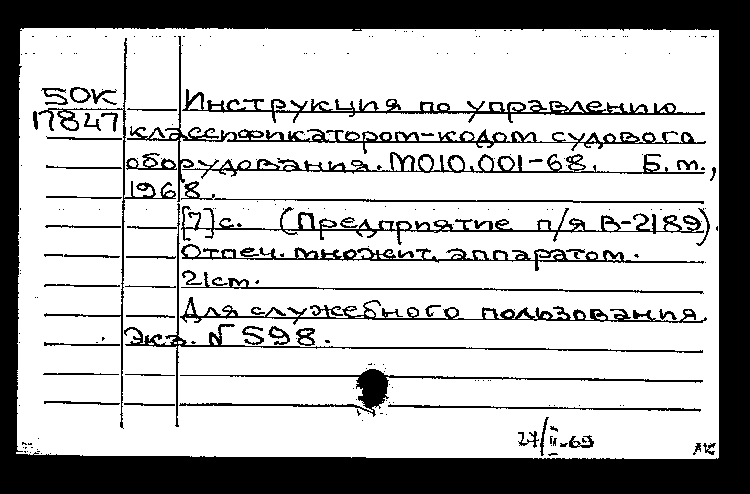 50К
17847
Инструкция по управлению
классификатором-кодом судового
оборудования. М010.001-68. Б.м.,
1968.
[7]с. (Предприятие п/я В-2189).
Отпеч. множит. аппаратом.
21см.
Для служебного пользования.
Экз. N 598.
27/II-69